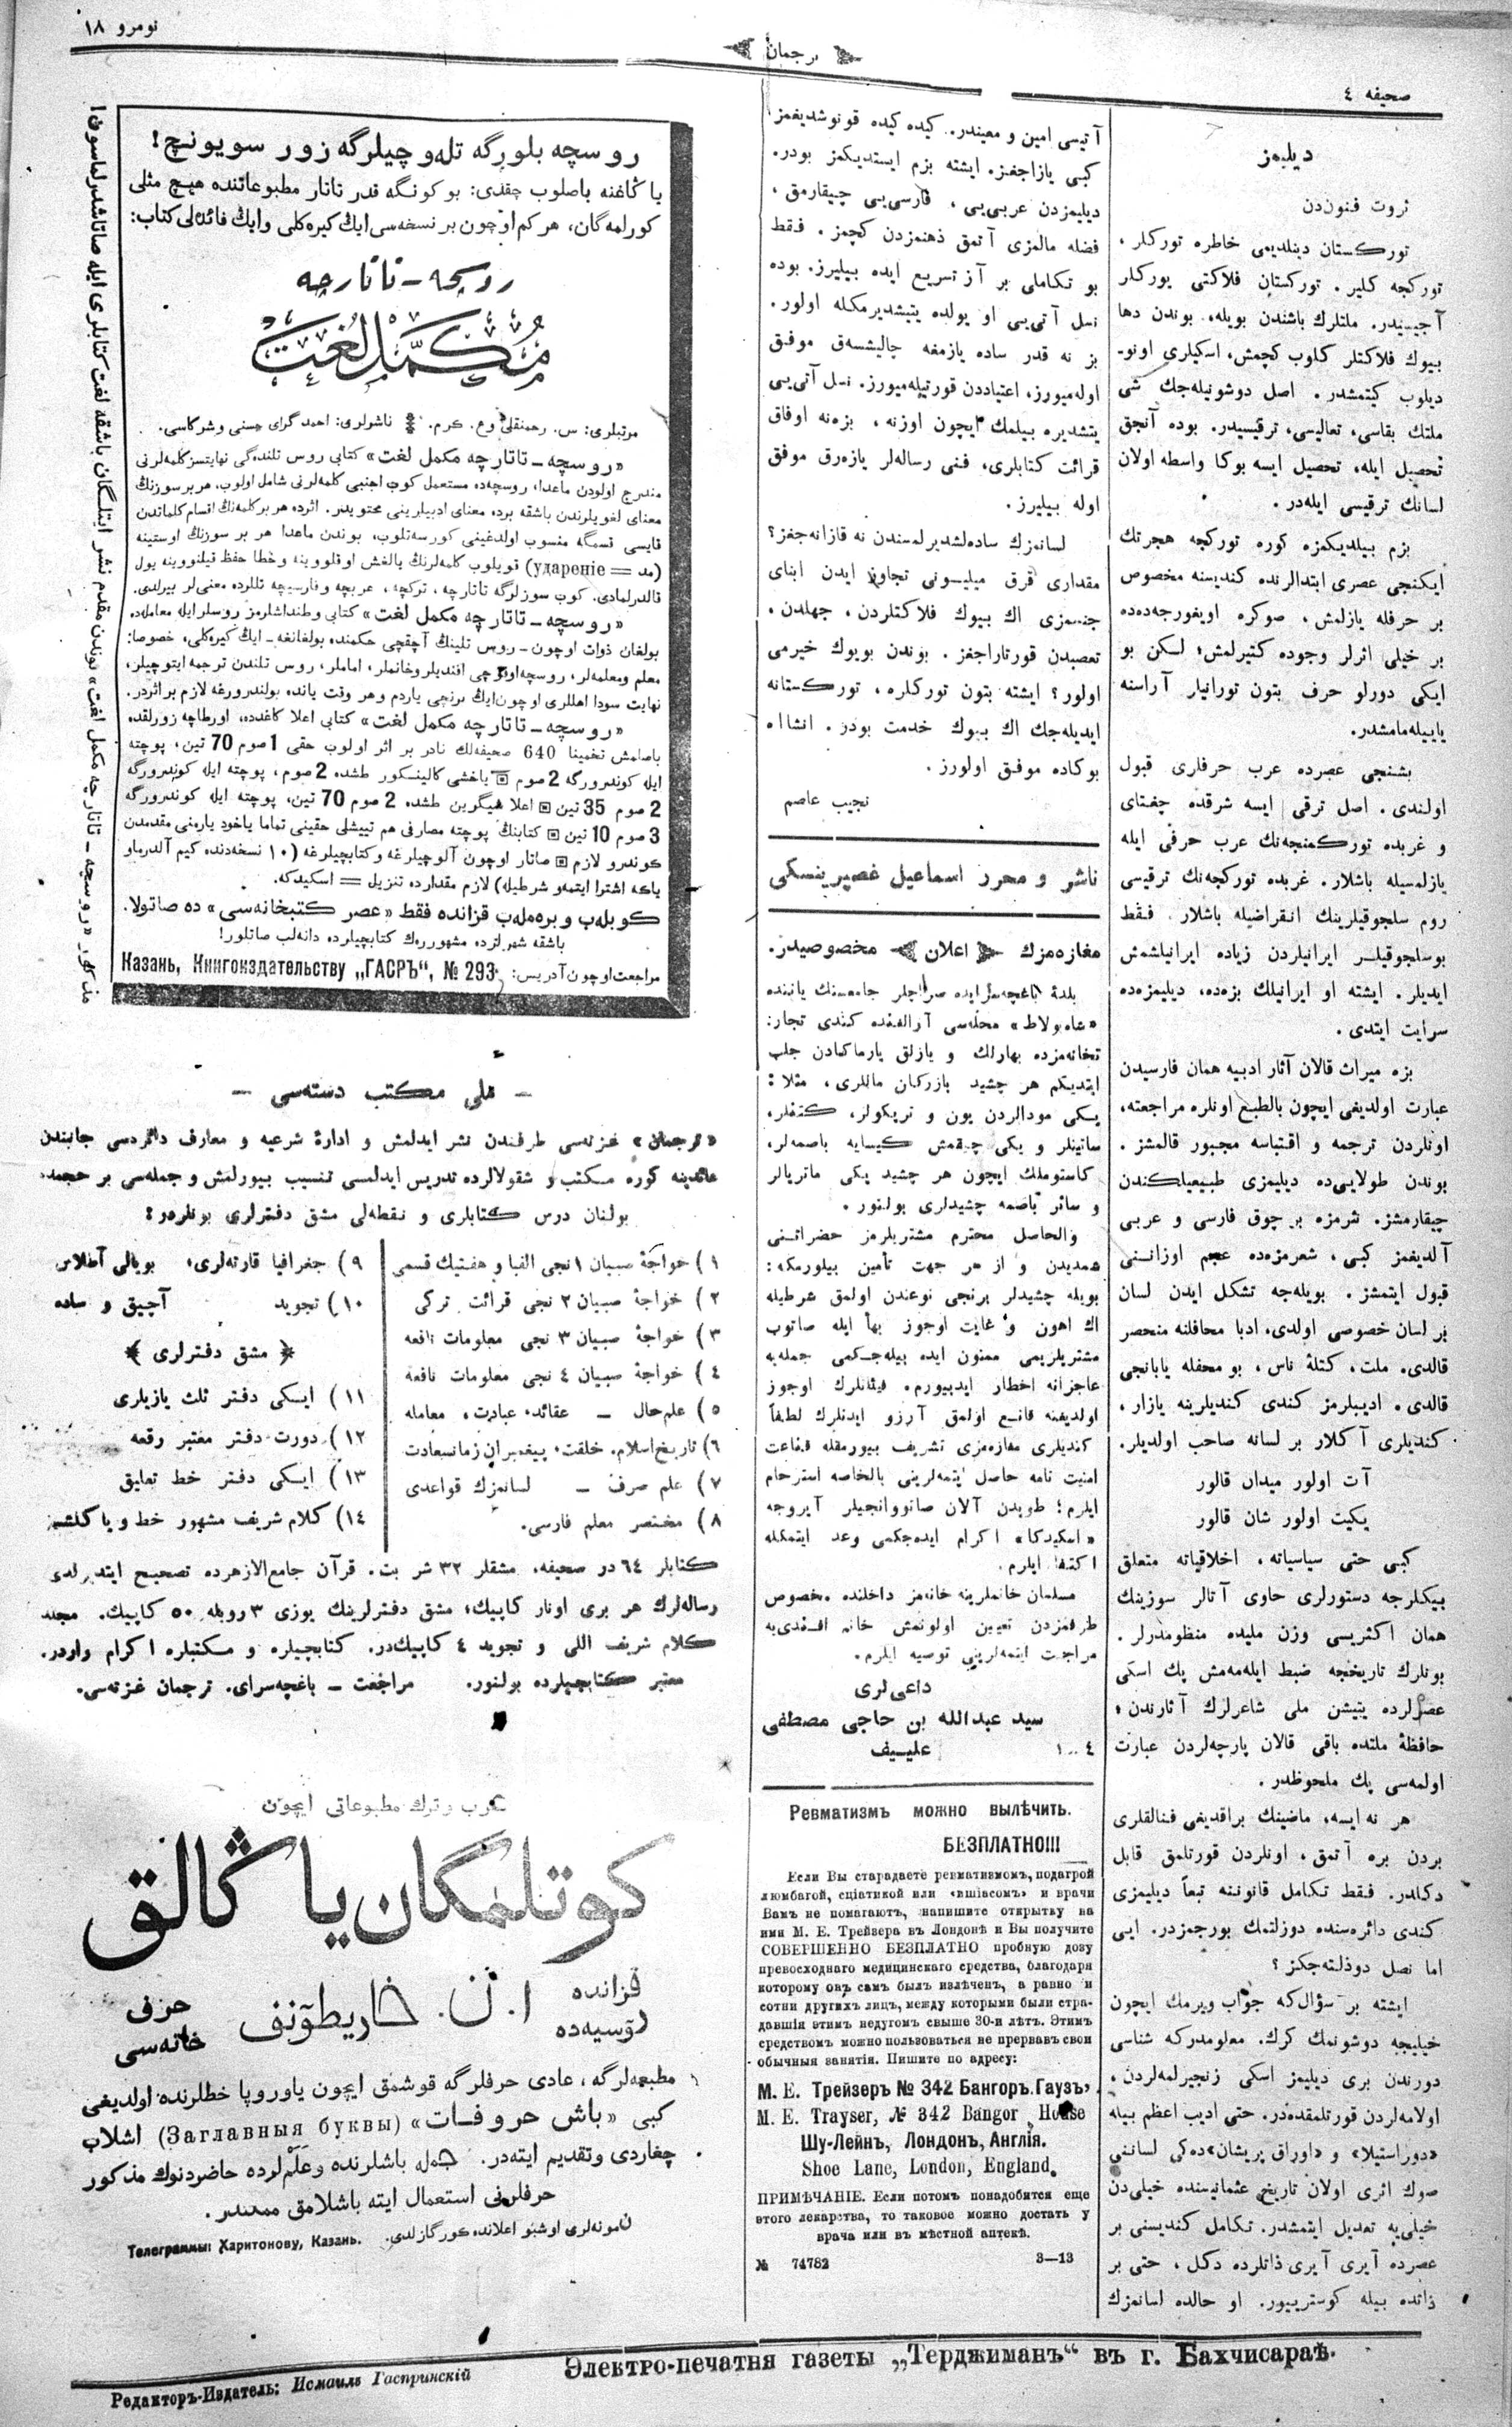 صحیفه ٤
ترجمان
نومرو ١٨
دیلیمز
ثروت فنون‌دن
تورکستان دینلدیمی خاطره تورکلر،
تورکجه کلیر. تورکستان فلاکتی یورکلر
آجیسیدر. ملتلرك باشندن بویله، بوندن دها
بیوك فلاکتلر کلوب کچمش، اسکیلری اونو-
دیلوب کیتمشدر. اصل دوشونیله‌جك شی
ملتك بقاسی، تعالیسی، ترقیسیدر. بوده آنجق
تحصیل ایله، تحصیل ایسه بوکا واسطه اولان
لسانك ترقیسی ایله‌در.
بزم بیلدیکمزه کوره تورکجه هجرتك
ایکنجی عصری ابتدالرنده کندیسنه مخصوص
بر حرفله یازلمش، صوکره اویغورجه‌ده‌ده
بر خیلی اثرلر وجوده کتیرلمش؛ لسکن بو
ایکی دورلو حرف بتون تورانیلر آراسنه
یاییله‌مامشدر.
بشنجی عصرده عرب حرفلری قبول
اولندی. اصل ترقی ایسه شرقده چغتای
و غربده تورکمنجه‌نك عرب حرفی ایله
یازلمسیله باشلار. غربده تورکچه‌نك ترقیسی
روم سلجوقیلرینك انقراضیله باشلار. فقط
بوسلجوقیلر ایرانیلردن زیاده ایرانیلشمش
ایدیلر. ایشته او ایرانیلك بزه‌ده، دیلیمزه‌ده
سرایت ایتدی.
بزه میراث قالان آثار ادبیه همان فارسیدن
عبارت اولدیغی ایچون بالطبع اونلره مراجعته،
اونلردن ترجمه و اقتباسه مجبور قالمشز.
بوندن طولایی‌ده دیلیمزی طبیعیلکندن
چیقارمشز. نثرمزه بر چوق فارسی و عربی
آلدیغمز کبی، شعرمزه‌ده عجم اوزانـنی
قبول ایتمشز. بویله‌جه تشکل ایدن لسان
بر لسان خصوصی اولدی. ادبا محافلنه منحصر
قالدی. ملت، کتلهٔ ناس، بو محفله یابانجی
قالدی. ادیبلرمز کندی کندیلرینه یازار،
کندیلری آکلار بر لسانه صاحب اولدیلر.
آت اولور میدان قالور
یکیت اولور شان قالور
کبی حتی سیاسیاته، اخلاقیاته متعلق
بیکلرجه دستورلری حاوی آتالر سوزینك
همان اکثریسی وزن ملیده منظومدرلر.
بونلرك تاریخجه ضبط ایله‌مه‌مش پك اسکی
عصرلرده یتیشن ملی شاعرلرك آثارندن،
حافظهٔ ملتده باقی قالان پارچه‌لردن عبارت
اولمه‌سی پك ملحوظدر.
هر نه ایسه، ماضینك براقدیغی فنالقلری
بردن بره آتمق، اونلردن قورتلمق قابل
دکلدر. فقط تکامل قانوننه تبعاً دیلیمزی
کندی دائره‌سنده دوزلتمك بورجمزدر. ایی
اما نصل دوذلته‌جکز؟
ایشته بر سؤال‌که جواب ویرمك ایچون
خیلیجه دوشونمك کرك. معلومدرکه شناسی
دورندن بری دیلیمز اسکی زنجیرلمه‌لردن،
اولامه‌لردن قورتلمقده‌در. حتی ادیب اعظم بیله
«دوراستیلا» و «اوراق پریشان»ده‌کی لساننی
صوك اثری اولان تاریخ عثمانیسنده خیلی‌دن
خیلی‌یه تعدیل ایتمشدر. تکامل کندیسنی بر
عصرده آیری آیری ذاتلرده دکل، حتی بر
ذاتده بیله کوستریيور. او حالده لسانمزك
آتیسی امین و معیندر. کیده کیده قونوشدیغمز
کبی یازاجغز. ایشته بزم ایستدیکمز بودر.
دیلیمزدن عربی‌یی، فارسی‌یی چیقارمق،
فضله مالمزی آتمق ذهنمزدن کچمز. فقط
بو تکاملی بر آز تسریع ایده بیلیرز. بوده
نسل آتی‌یی او یولده یتیشدیرمکله اولور.
بز نه قدر ساده یازمغه چالیشسه‌ق موفق
اوله‌میورز، اعتیاددن قورتیله‌میورز. نسل آتی‌یی
یتشدیره بیلمك ایچون اوزنه، بزه‌نه اوفاق
قرائت کتابلری، فنی رساله‌لر یازه‌رق موفق
اوله بیلیرز.
لسانمزك ساده‌لشدیرلمسندن نه قازانه‌جغز؟
مقداری قرق میلیونی تجاوز ایدن ابنای
جنسمزی اك بیوك فلاکتلردن، جهلدن،
تعصبدن قورتاراجغز. بوندن بویوك خیرمی
اولور؟ ایشته بتون تورکلره، تورکستانه
ایدیله‌جك اك بیوك خدمت بودر. انشاا‌ه
بوکاده موفق اولورز.
نجیب عاصم
ناشر و محرر اسماعیل غصپرینسکی
مغازه‌مزك اعلان مخصوصیدر.
بلدهٔ باغچه‌سرایده صراجلر جامعسنك یاننده
تخانه‌مزده بهارلك و یازلق یارماکادن جلب
ایتدیکم هر چشید بازرکان ماللری، مثلا:
یکی مودالردن یون و تریکولر، کتفلر،
ساتینلر و یکی چیقمش کیسایه باصمه‌لر،
کاستوملك ایچون هر چشید یکی ماتریالر
و سائر باصمه چشیدلری بولنور.
والحاصل محترم مشتریلرمز حضراتـنی
همدیدن و از هر جهت تأمین بیلورمکه:
بویله چشیدلر برنجی نوعندن اولمق شرطیله
اك اهون و غایت اوجوز بها ایله صاتوب
مشتریلریمی ممنون ایده بیله‌جکمی جمله‌یه
عاجزانه اخطار ایدییورم. فیئاتلرك اوجوز
اولدیغنه قانع اولمق آرزو ایدنلرك لطفاً
کندیلری مغازه‌مزی تشریف بیورمقله قناعت
امنیت نامه حاصل ایتمه‌لرینی بالخاصه استرحام
ایلرم؛ طوپدن آلان صاتووانجیلر آیروجه
«اسکیدکا» اکرام ایده‌جکمی وعد ایتمکله
اکتفا ایلرم.
مسلمان خانملرینه خانه‌مز داخلنده مخصوص
طرفمزدن تعیین اولونمش خانم افندی‌یه
مراجعت ایتمه‌لرینی توصیه ایلرم.
داعی‌لری
سید عبدالله بن حاجی مصطفی
علییف
٤..١
Ревматизмъ можно вылѣчить.
БЕЗПЛАТНО!!!
Если Вы старадаете ревматизмомъ, подагрой
люмбагой, сціатикой или «ишіасомъ» и врачи
Вамъ не помогаютъ, напишите открытку на
имя М. Е. Трейзера въ Лондонѣ и Вы получите
СОВЕРШЕННО БЕЗПЛАТНО пробную дозу
превосходнаго медицинскаго средства, благодаря
которому онъ самъ былъ излѣченъ, а равно и
сотни другихъ лицъ, между которыми были стра-
давшія этимъ недугомъ свыше 30-и лѣтъ. Этимъ
средствомъ можно пользоваться не прервавъ свои
обычныя занятія. Пишите по адресу:
М. Е. Трейзеръ № 342 Бангоръ.Гаузъ,
M. E. Trayser, № 342 Bangor House
Шу-Лейнъ, Лондонъ, Англія.
Shoe Lane, London, England.
ПРИМѢЧАНІЕ. Если потомъ понадобится еще
этого лекарства, то таковое можно достать у
врача или въ мѣстной аптекѣ.
№ 74782 3—13
روسچه بلورگه تله‌وچیلرگه زور سویونچ!
یاڭاغنه باصلوب چقدی: بو کونگه قدر تاتار مطبوعاتنده هیچ مثلی
کورلمه‌گان، هرکم اوچون بر نسخه‌سی ایڭ کیره‌کلی و ایڭ فائده‌لی کتاب:
روسچه - تاتارچه
مُکمَّل لُغَت
مرتبلری: س. رحمنقلی و ع. کرم. ناشرلری: احمد گرای حسنی و شرکاسی.
«روسچه - تاتارچه مکمل لغت» کتابی روس تلنده‌گی نهایتسز کلمه‌لرنی
مندرج اولودن ماعدا، روسچه‌ده مستعمل کوب اجنبی کلمه‌لرنی شامل اولوب، هر بر سوزنڭ
معنای لغویلرندن باشقه برده معنای ادبیلرینی محتویدر. اثرده هر بر کلمه‌نڭ اقسام کلماتدن
قایسی قسمگه منسوب اولدغینی کورسه‌تلوب، بوندن ماعدا هر بر سوزنڭ اوستینه
(مد = удареніе) قویلوب کلمه‌لرنڭ یالغش اوقلووینه وخطا حفظ قیلنووینه یول
قالدرلمادی. کوب سوزلرگه تاتارچه، ترکچه، عربچه و فارسیچه تللرده معنی‌لر بیرلدی.
«روسچه - تاتارچه مکمل لغت» کتابی وطنداشلرمز روسلر ایله معامله‌ده
بولغان ذوات اوچون - روس تلینڭ آچقچی حکمنده بولغانغه - ایڭ کیره‌کلی، خصوصا:
معلم ومعلمه‌لر، روسچه اوقوچی افندیلر وخانملر، اماملر، روس تلندن ترجمه ایتوچیلر،
نهایت سودا اهللری اوچون ایڭ برنچی یاردم و هر وقت یانده بولندرورغه لازم بر اثردر.
«روسچه - تاتارچه مکمل لغت» کتابی اعلا کاغدده، اورطاچه زورلقده
باصلمش تخمینا 640 صحیفه‌لك نادر بر اثر اولوب حقی 1 صوم 70 تین، پوچته
ایله کوندرورگه 2 صوم یاخشی کالینکور طشده 2 صوم، پوچته ایله کوندرورگه
2 صوم 35 تین اعلا شیگرین طشده 2 صوم 70 تین، پوچته ایله کوندرورگه
3 صوم 10 تین کتابنڭ پوچته مصارفی هم تییشلی حقینی تماما یاخود یارمنی مقدمدن
کوندرو لازم صاتار اوچون آلوچیلرغه و کتابچیلرغه (١٠ نسخه‌دنده کیم آلدرماو
یاکه اشترا ایتمه‌و شرطیله) لازم مقدارده تنزیل = اسکیدکه.
کوبله‌ب و بره‌مله‌ب قزانده فقط «عصر کتبخانه‌سی» ده صاتولا.
باشقه شهرلرده مشهورره‌ك کتابچیلرده دانه‌لب صاتلور!
مراجعت اوچون آدریس: Казань, Книгоиздательству „ГАСРЪ“, № 293.
مذکور «روسچه - تاتارچه مکمل لغت» بوندن مقدم نشر ایتلگان باشقه لغت کتابلری ایله صاتاشدرلماسون!
— ملی مکتب دسته‌سی —
«ترجمان» غزته‌سی طرفندن نشر ایدلمش و ادارهٔ شرعیه و معارف دائره‌سی جانبندن
عائدینه کوره مکتب و شقولالرده تدریس ایدلمسی تنسیب بیورلمش و جمله‌سی بر حجمده
بولنان درس کتابلری و نقطه‌لی مشق دفترلری بونلردر:
١) خواجهٔ صبیان ١ نجی الفبا و هفتیك قسمی
٢) خواجهٔ صبیان ٢ نجی قرائت ترکی
٣) خواجهٔ صبیان ٣ نجی معلومات نافعه
٤) خواجهٔ صبیان ٤ نجی معلومات نافعه
٥) علم‌حال — عقائد، عبادت، معامله
٦) تاریخ اسلام. خلقت، پیغمبران زمانسعادت
٧) علم صرف — لسانمزك قواعدی
٨) مختصر معلم فارسی.
٩) جغرافیا قارته‌لری، بویالی آطلاس
١٠) تجوید آچیق و ساده
﴿ مشق دفترلری ﴾
١١) ایکی دفتر ثلث یازیلری
١٢) دورت دفتر معتبر رقعه
١٣) ایکی دفتر خط تعلیق
١٤) کلام شریف مشهور خط و پاك
کتابلر ٦٤ در صحیفه، مشقلر ٣٢ شر بت. قرآن جامع‌الازهرده تصحیح ایتدیرلدی
رساله‌لرك هر بری اونار کاپیك؛ مشق دفترلرینك یوزی ٣ روبله ٥٠ کاپیك. مجلد
کلام شریف اللی و تجوید ٤ کاپیك‌در. کتابجیلره و مکتبلره اکرام واردر.
معتبر کتابجیلرده بولنور. مراجعت — باغچه‌سرای. ترجمان غزته‌سی.
عرب و ترك مطبوعاتی ایچون
کوتلمگان یاڭالق
قزانده
رۆسیه‌ده
ا. ن. خاریطۆنف
حرفی
خانه‌سی
مطبعه‌لرگه، عادی حرفلرگه قوشمق ایچون یاوروپا خطلرنده اولدیغی
کبی «باش حروفات» (Заглавныя буквы) اشلاب
چغاردی و تقدیم ایته‌در. جمله باشلرنده و عَلَم‌لرده حاضردنوك مذکور
حرفلرنی استعمال ایته باشلامق ممکندر.
نمونه‌لری اوشبو اعلانده کورگازلدی. Телеграммы: Харитонову, Казань.
Электро-печатня газеты „Терджиманъ“ въ г. Бахчисараѣ.
Редакторъ-Издатель: Исмаилъ Гаспринскій